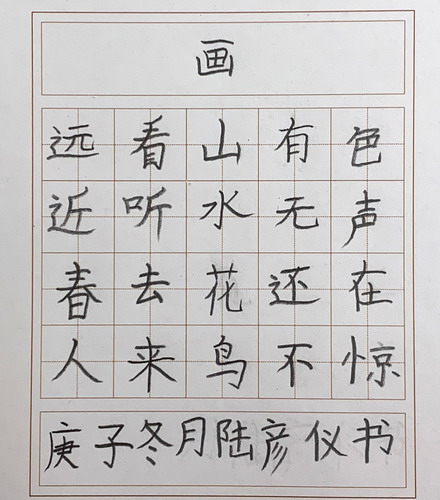 画
远看山有色
近听水无声
春去花还在
人来鸟不惊
庚子冬月陆彦仪书